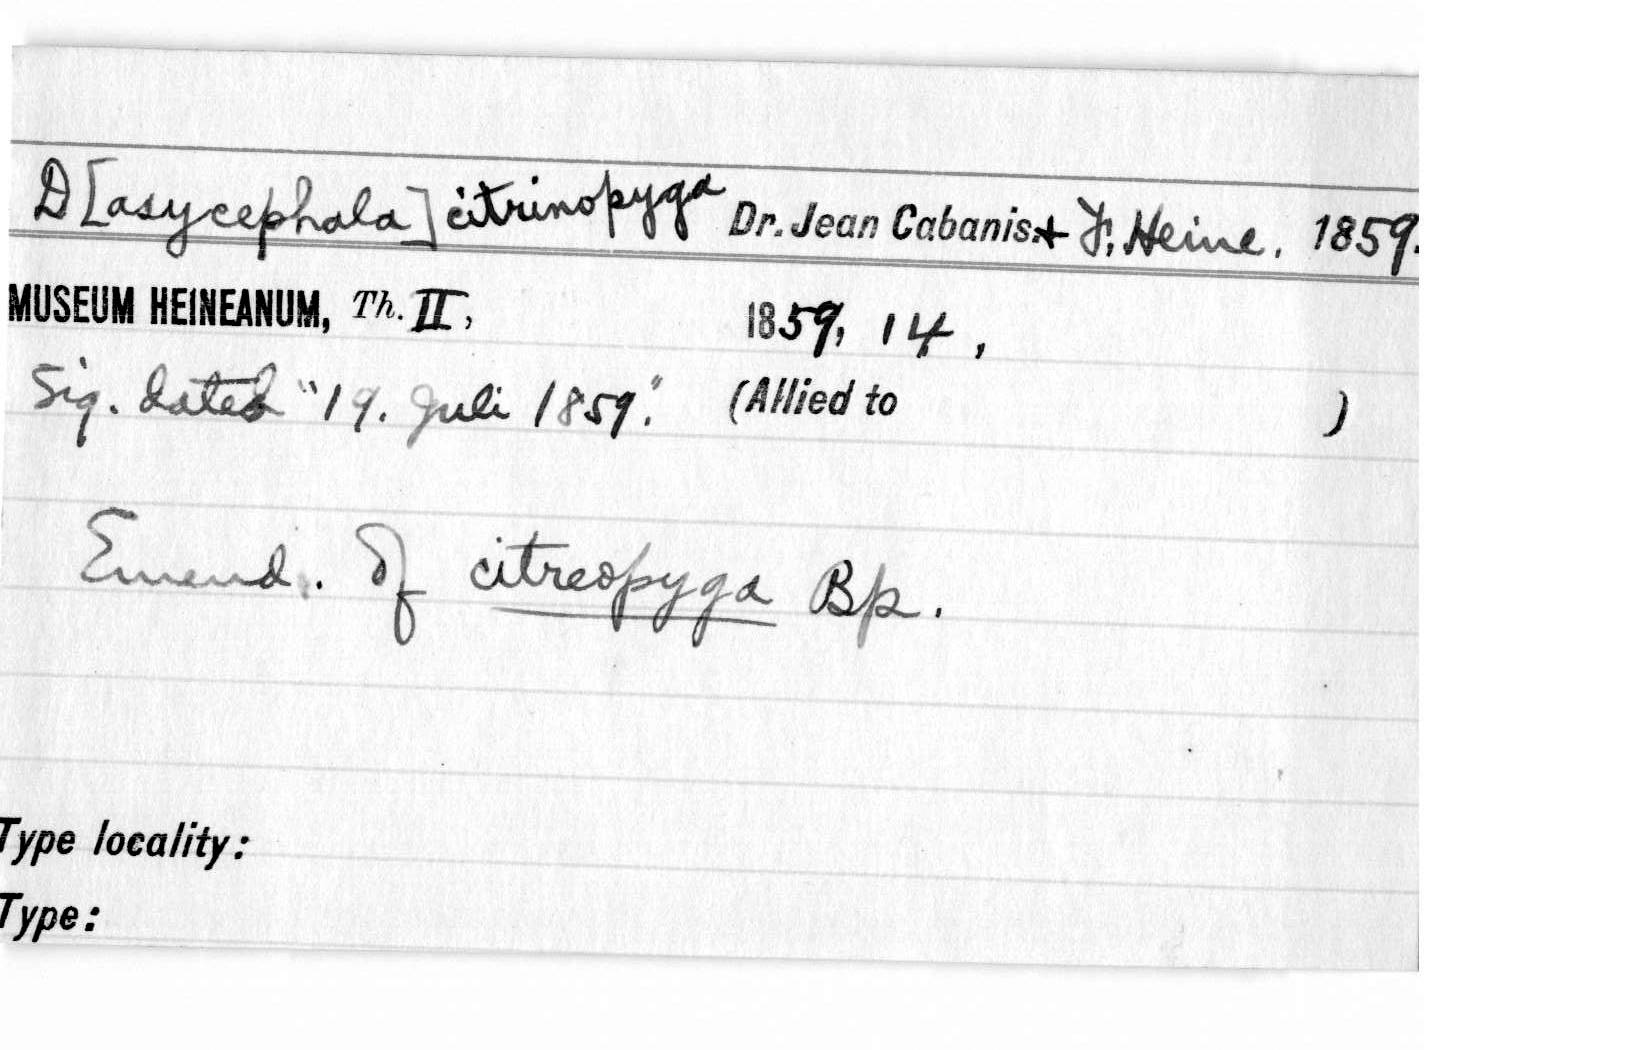 D[asycephala] citrinopyga Dr. Jean Cabanis. + F. Heine. 1859.
MUSEUM HEINEANUM, Th. II, 1859, 14,
Sig. dated "19. Juli 1859". (Allied to )
Emend. of citreopyga Bp.
Type locality:
Type: